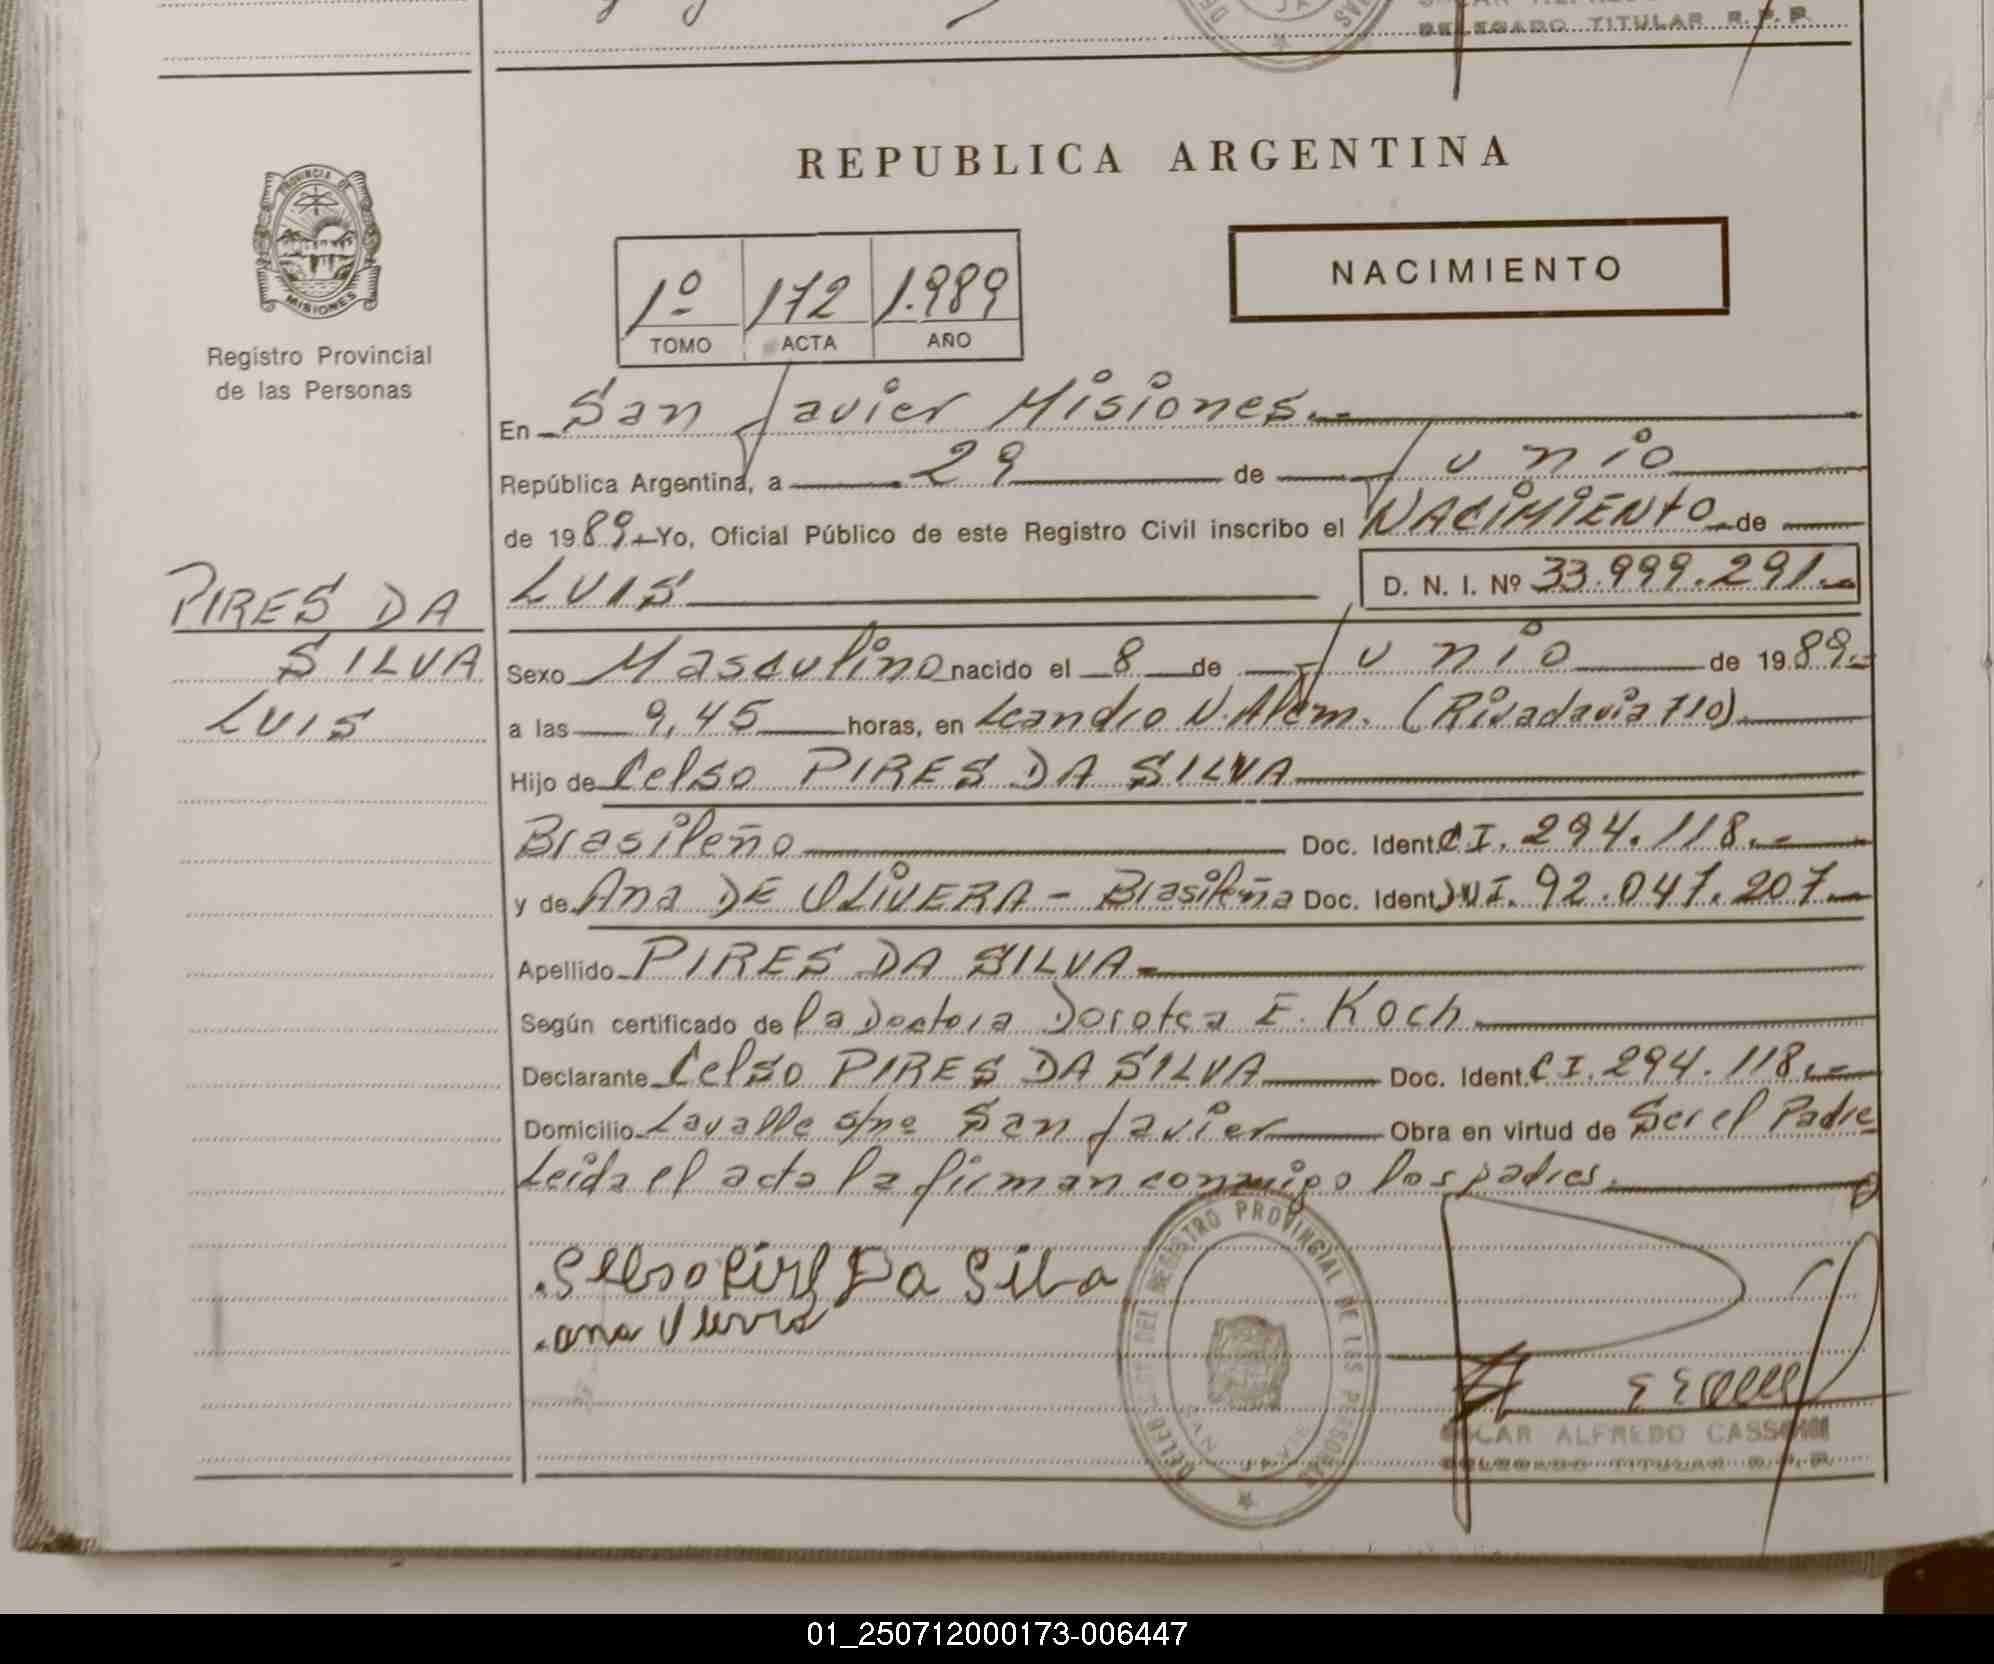 DELEGADO TITULAR R.P.P.
REPUBLICA ARGENTINA
PROVINCIA DE
MISIONES
Registro Provincial
de las Personas
NACIMIENTO
1º 172 1.989
TOMO ACTA AÑO
En San Javier Misiones.-
República Argentina, a 29 de Junio
de 1989.- Yo, Oficial Público de este Registro Civil inscribo el NACIMIENTO de
LUIS D. N. I. Nº 33.999.291.-
PIRES DA
SILVA
LUIS
Sexo Masculino nacido el 8 de Junio de 1989.-
a las 9,45 horas, en Leandro N. Alem. (Rivadavia 710)
Hijo de Celso PIRES DA SILVA
Brasileño Doc. Ident. CI. 294.118.-
y de Ana DE OLIVERA - Brasileña Doc. Ident. DNI. 92.047.207.-
Apellido PIRES DA SILVA.-
Según certificado de la Doctora Dorotea E. Koch.
Declarante Celso PIRES DA SILVA Doc. Ident. CI. 294.118.-
Domicilio Lavalle s/nº San Javier Obra en virtud de Ser el Padre
Leida el acta la firman conmigo los padres.
DEL REGISTRO PROVINCIAL DE LAS PERSONAS
SAN JAVIER
Da Silva
ana
OSCAR ALFREDO
DELEGADO TITULAR R.P.P.
01_250712000173-006447